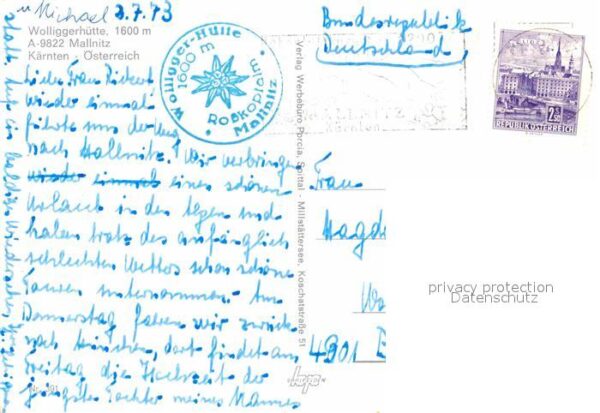 u. Michael 3.7.73
Wolliggerhütte, 1600 m
A-9822 Mallnitz
Kärnten · Österreich
Liebe Frau
wieder einmal
führte uns der Weg
nach Mallnitz. Wir verbringen
wieder einmal einen schönen
Urlaub in den Alpen und
haben trotz des anfänglich
schlechten Wetters schon schöne
Touren unternommen. Am
Donnerstag fahren wir zurück
nach München, dort findet am
Freitag die Hochzeit der
jüngsten Tochter meines Mannes
statt. Auf ein baldiges Wiedersehen
Wolligger-Hütte
1600 m
Roßkopfalm
Mallnitz
Verlag Werbebüro Porcia, Spittal - Millstättersee, Koschatstraße 51
MALLNITZ
Kärnten
Bundesrepublik
Deutschland
2.50
REPUBLIK ÖSTERREICH
Frau
Magd
4901
hp
privacy protection
Datenschutz